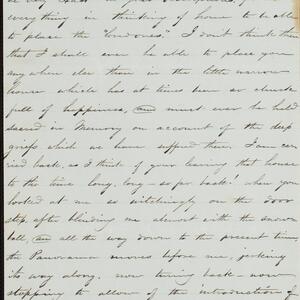 everything in thinking of home to be able
to place the "loved ones." I don't think then
that I shall ever be able to place you
any where else than in the little narrow
house which has at times been so chuck
full of happiness, and must ever be held
sacred in Memory on account of the deep
griefs which we have suffered there. I am car
ried back, as I think of your leaving that house
to the time long, long - so far back! when you
looked at me so witchingly on the door
step after blinding me almost with the snow
ball, and all the way down to the present time
the Panorama moves before me, jerking
its way along. now turning back - now
stopping to allow of the introduction of